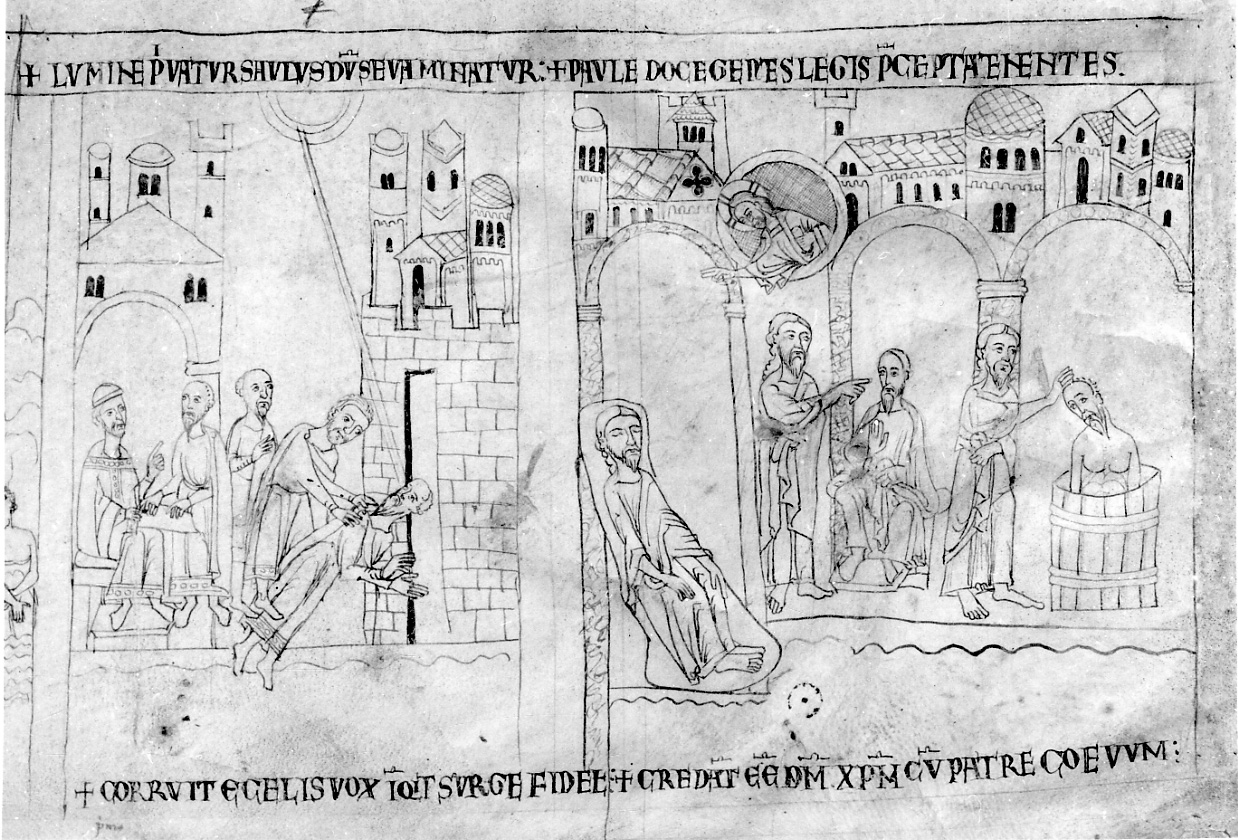 + LVMINE PIVATVR SAVLVS DVS EVAMINATVR: + PAVLE DOCE GENTES LEGIS PCEPTA TENENTES.
+ CORRVIT E CELIS VOX IQIT SVRGE FIDEL: + CREDAT EE DM XPM CV PATRE COEVVM: